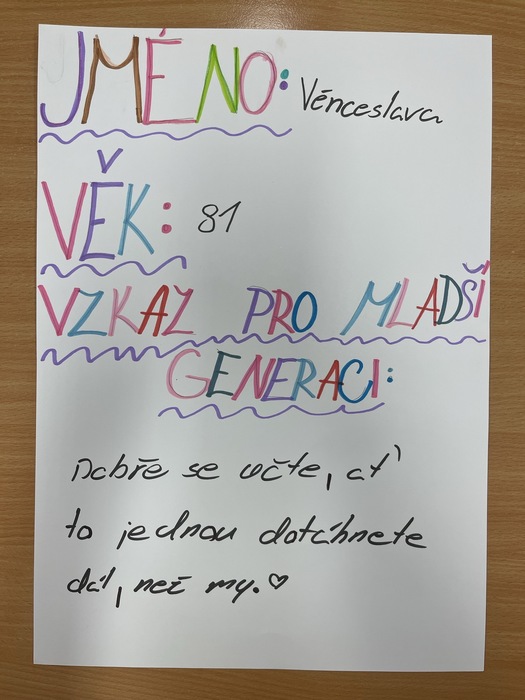 JMÉNO: Vénceslava
VĚK: 81
VZKAZ PRO MLADŠÍ
GENERACI:
Dobře se učte, ať
to jednou dotáhnete
dál, než my. ♡